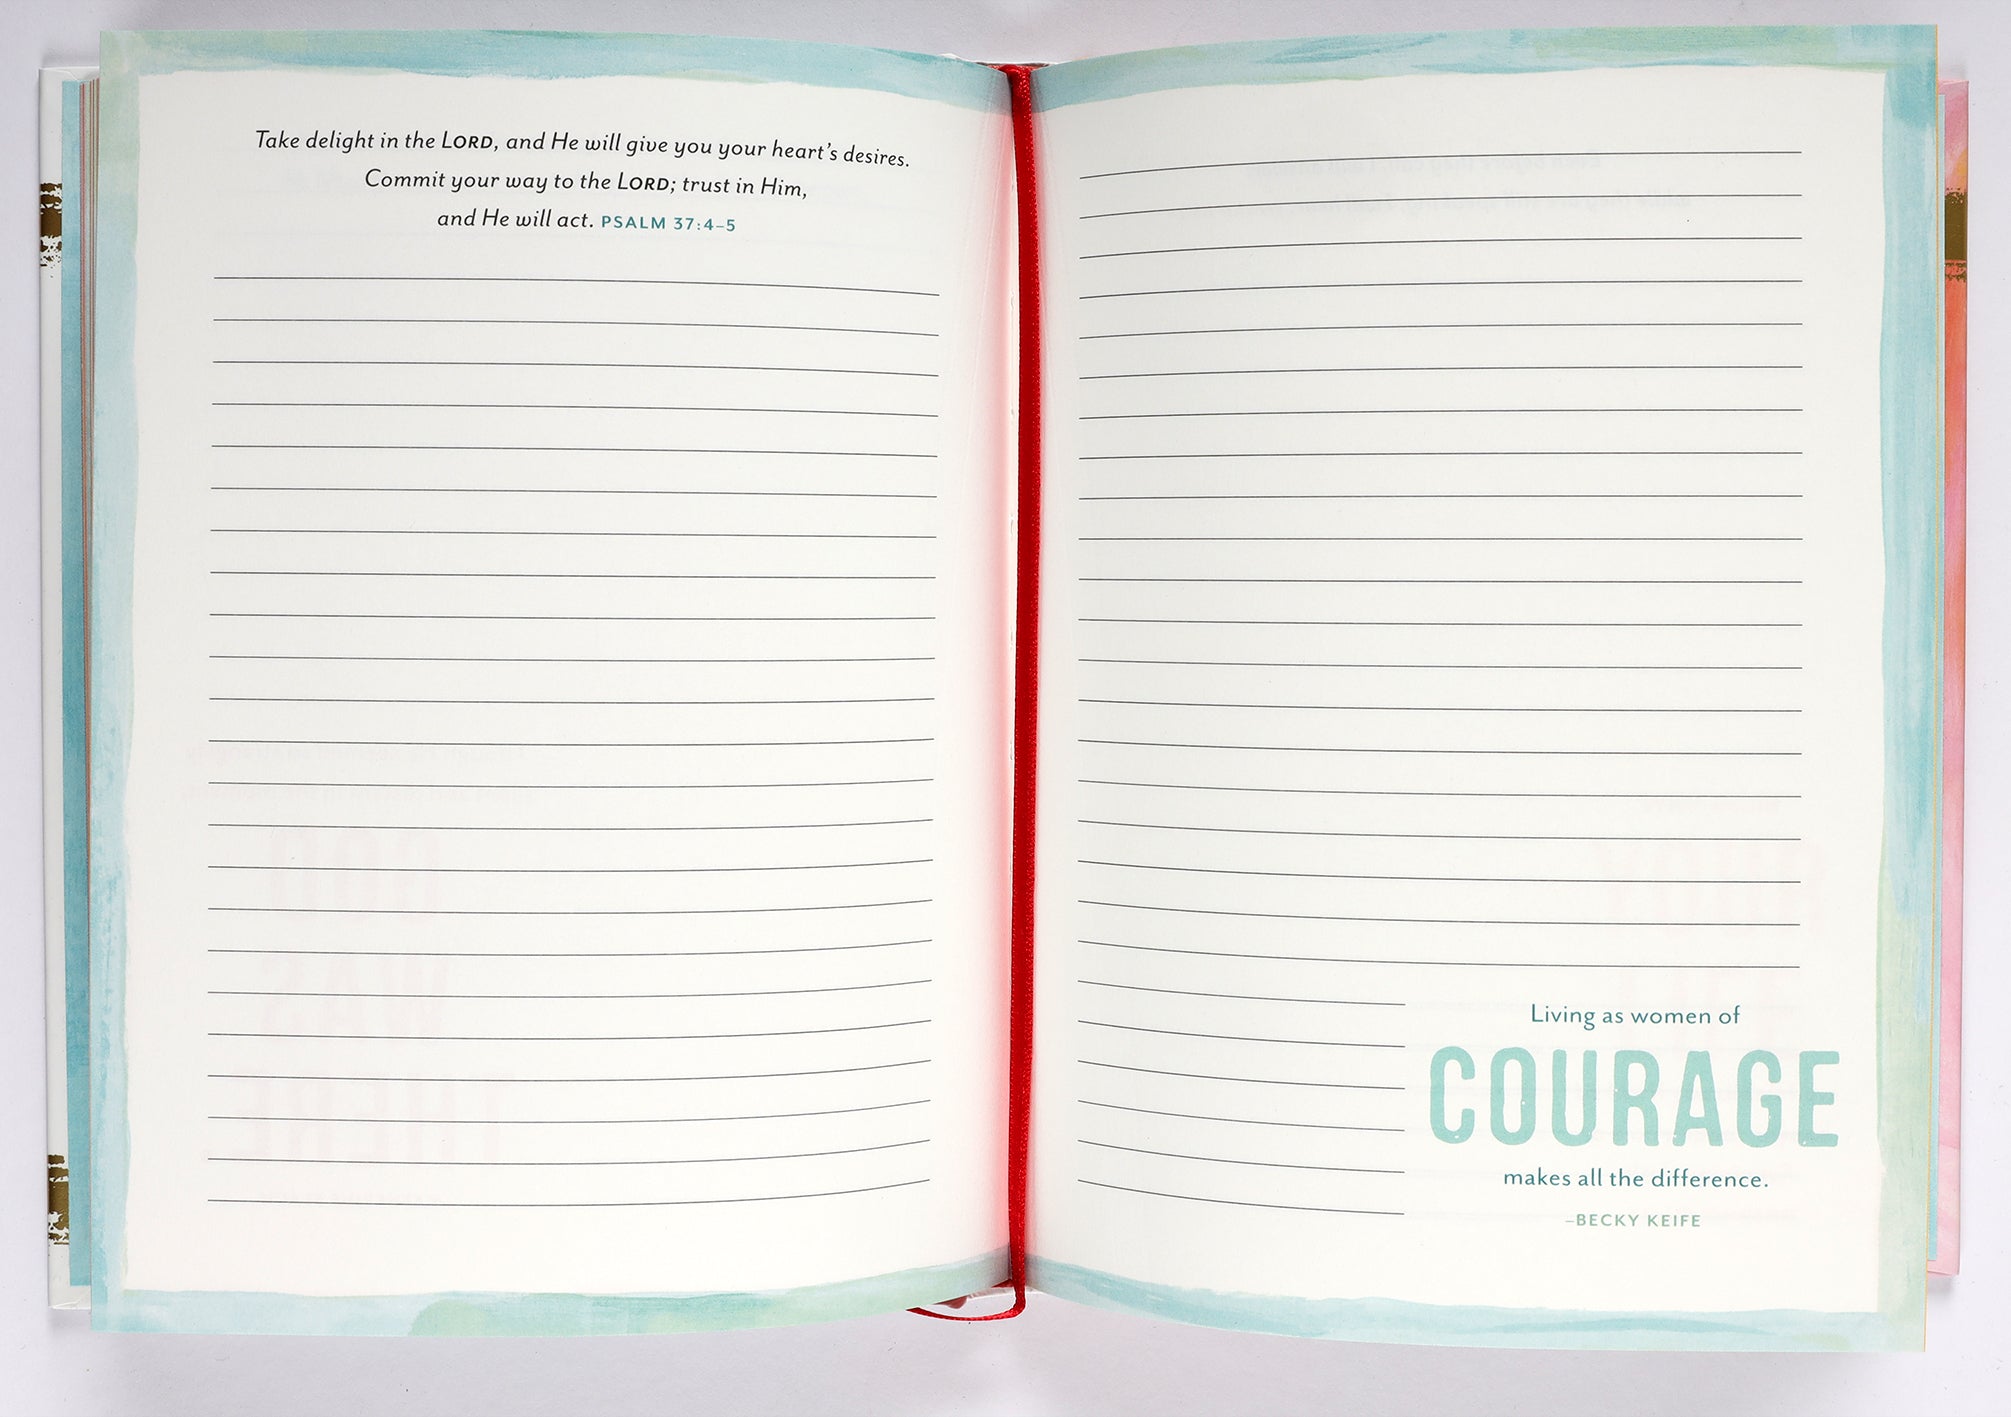 Take delight in the LORD, and He will give you your heart's desires.
Commit your way to the LORD; trust in Him,
and He will act. PSALM 37:4–5
Living as women of
COURAGE
makes all the difference.
–BECKY KEIFE
GOD
WAS
THERE